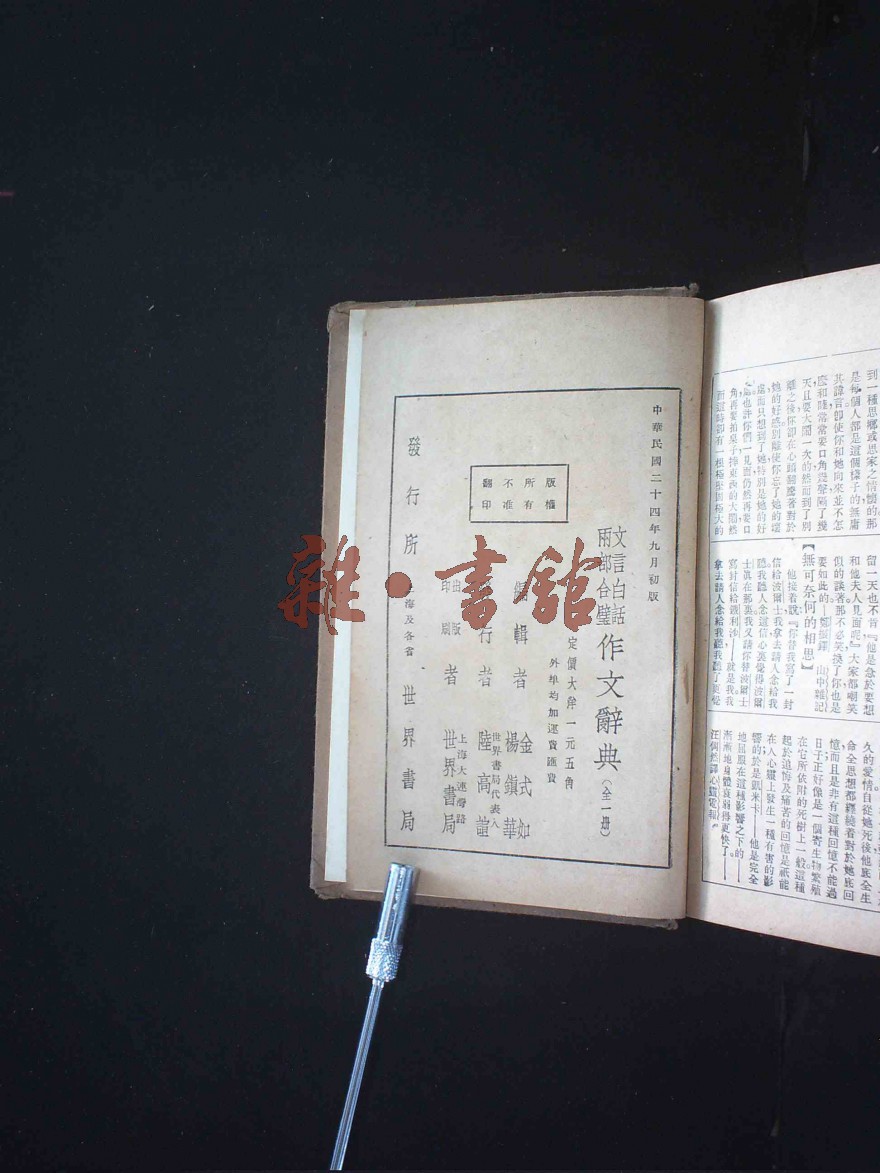 中華民國二十四年九月初版
文言白話
兩部合璧
作文辭典（全一冊）
定價大洋一元五角
外埠均加運費匯費
版權
所有
不准
翻印
編輯者
金式如
楊鎮華
行者
世界書局代表人
陸高誼
出版
印刷
者
上海大連灣路
世界書局
發行所
海及各省
世界書局
雜·書館
到一種思鄉或思家之情懷的那
是每個人都是這個樣子的無庸
其諱言卽使你和她向來並不怎
麽和睦常常要口角幾聲隔了幾
天且要大鬧一次的然而到了別
離之後你卻在心頭翻騰著對於
她的好感別離使你忘了她的壞
處而只想到了她特別是她的好
處也許你們一見面仍然再要口
角再要拍桌子摔東西的大鬧然
而這時卻有一根極堅固極大的
留一天也不肯。』他是急於要想
和他夫人見面呢』大家都嘲笑
似的談著那不必笑換了你也是
要如此的——鄭振鐸 山中雜記
【無可奈何的相思】
他接着說『你替我寫了一封
信給波爾士我拿去請人念給我
聽我聽人念這信心裏覺得波爾
士真在那裏我又請你替波爾士
寫封信給鐵利沙——就是我我
拿去請人念給我聽我聽了更覺
久的愛情自從她死後他底全生
命全思想都纏繞着對於她底回
憶而且是非有這種回憶不能過
日子正好像是一個寄生物繁殖
在它所依附的死樹上一般這種
起於追悔及痛苦的回憶是祇能
在人心靈上發生一種有害的影
響的於是凱米卡——他是完全
地屈服在這種影響之下的——
漸漸地身體衰弱得更快了——